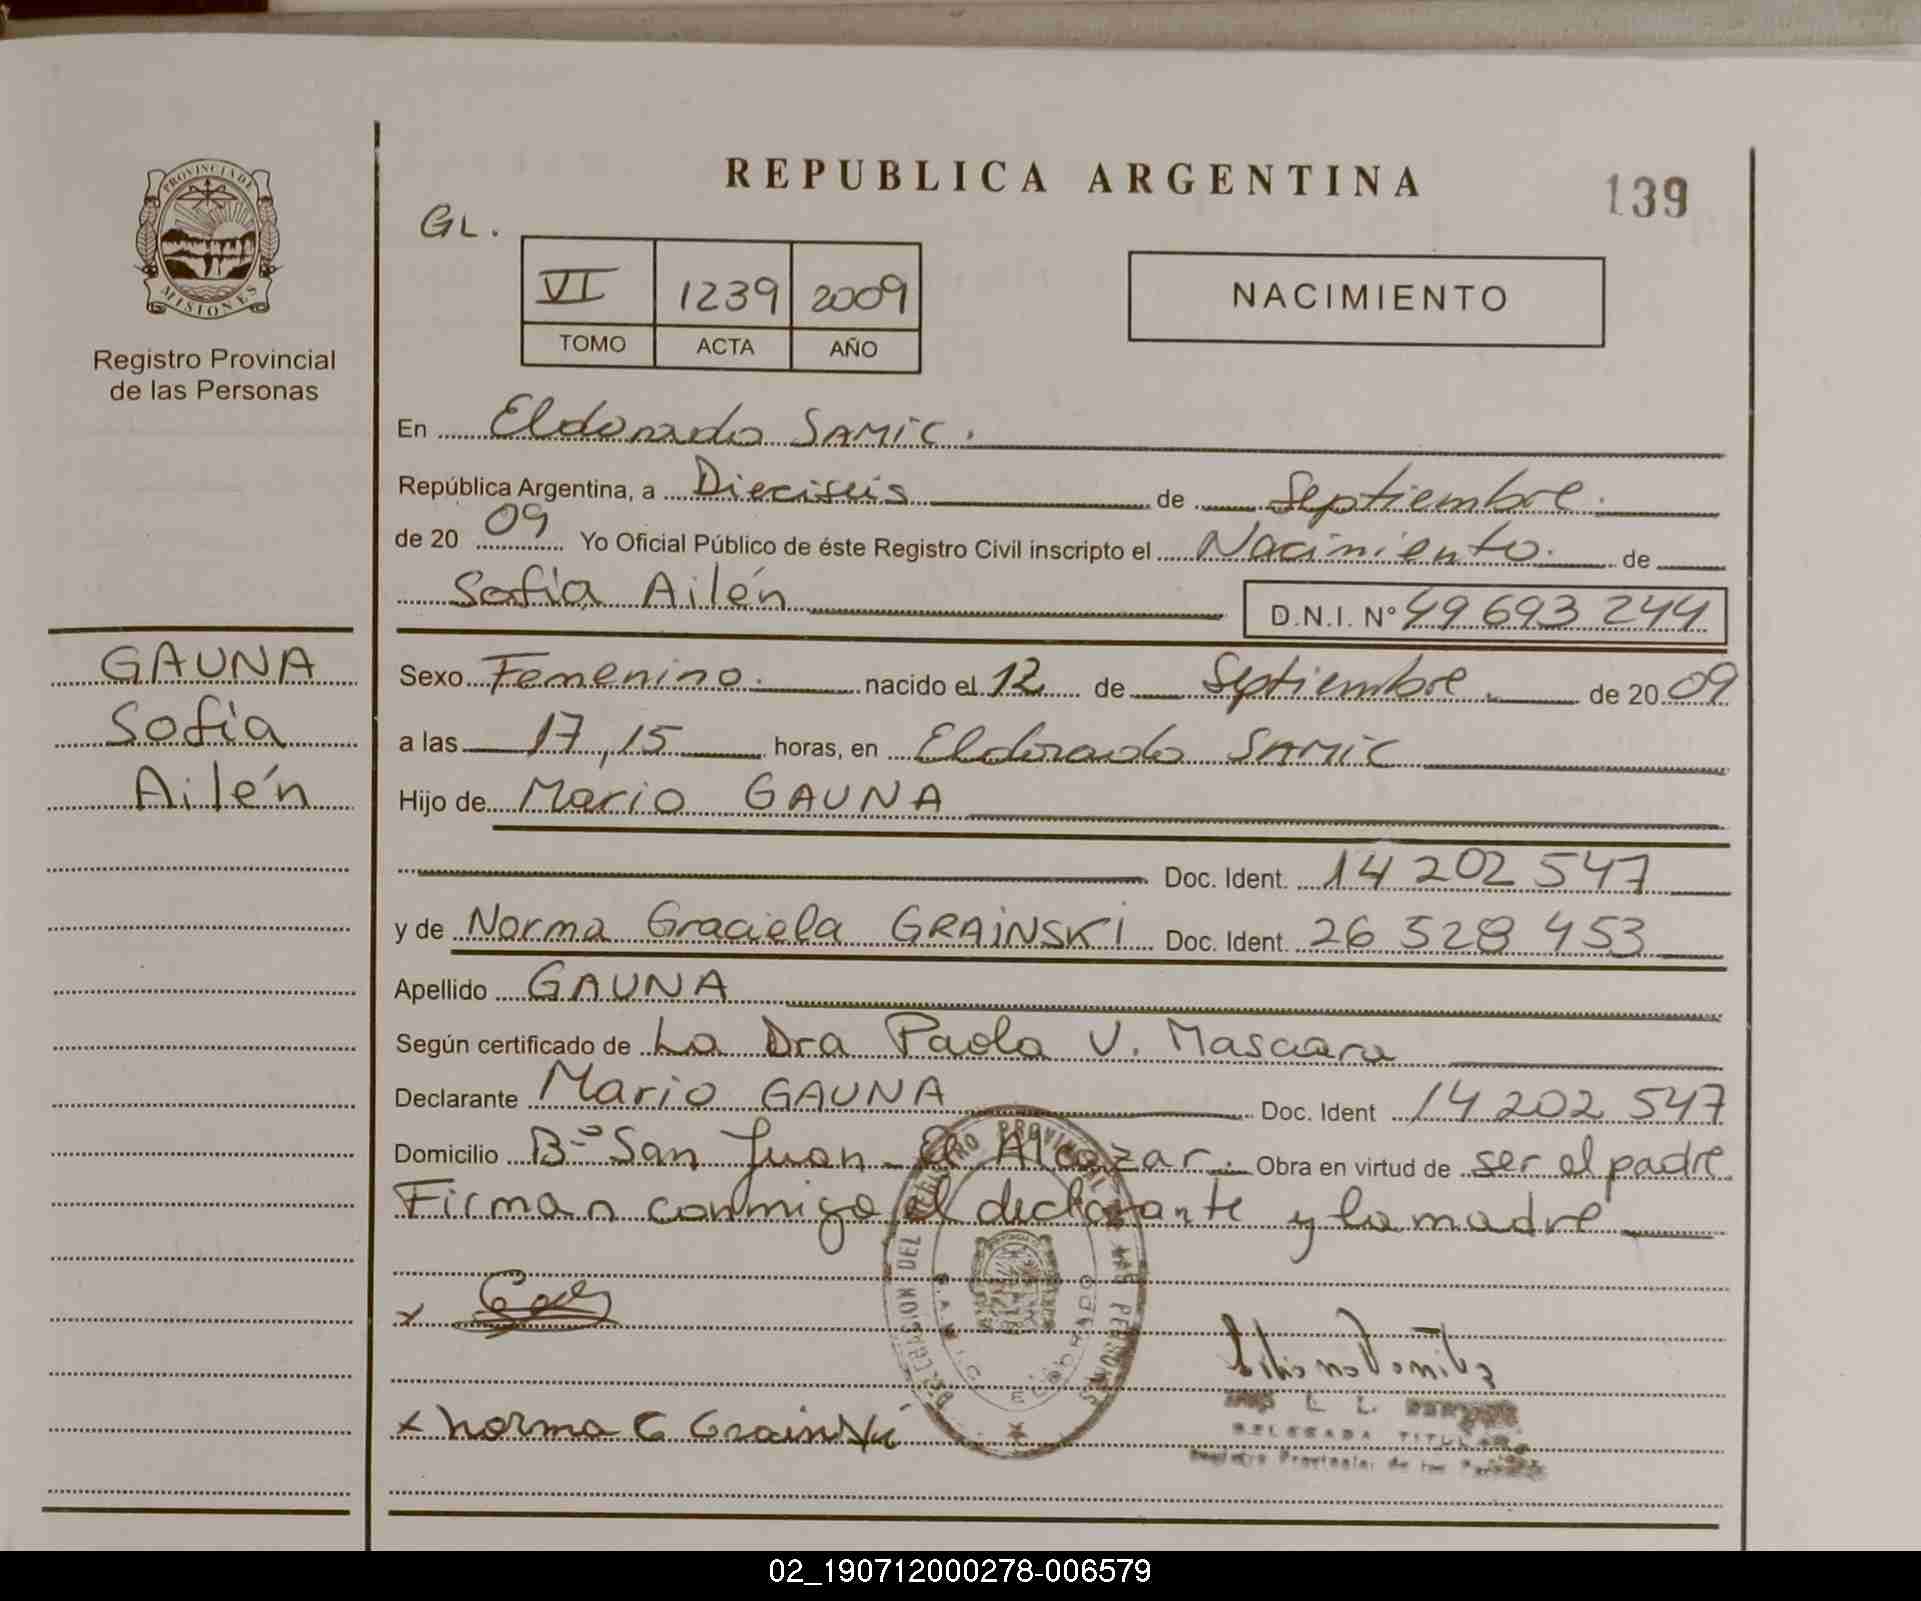 REPUBLICA ARGENTINA
139
GL.
VI 1239 2009
TOMO ACTA AÑO
NACIMIENTO
PROVINCIA DE
MISIONES
Registro Provincial
de las Personas
GAUNA
Sofía
Ailén
En Eldorado SAMIC.
República Argentina, a Dieciseis de Septiembre.
de 2009 Yo Oficial Público de éste Registro Civil inscripto el Nacimiento. de
Sofía Ailén D.N.I. N° 49 693 244
Sexo Femenino. nacido el 12 de Septiembre. de 2009
a las 17,15 horas, en Eldorado SAMIC
Hijo de Mario GAUNA
Doc. Ident. 14 202 547
y de Norma Graciela GRAINSKI Doc. Ident. 26 528 453
Apellido GAUNA
Según certificado de La Dra Paola V. Mascara
Declarante Mario GAUNA Doc. Ident 14 202 547
Domicilio B-° San Juan - El Alcazar. Obra en virtud de ser el padre
Firman conmigo el declarante y la madre
DELEGACION DEL REGISTRO PROVINCIAL DE LAS PERSONAS
S.A.M.I.C. ELDORADO
x
x Norma G Grainski
DELEGADA TITULAR
Registro Provincial de las Personas
02_190712000278-006579